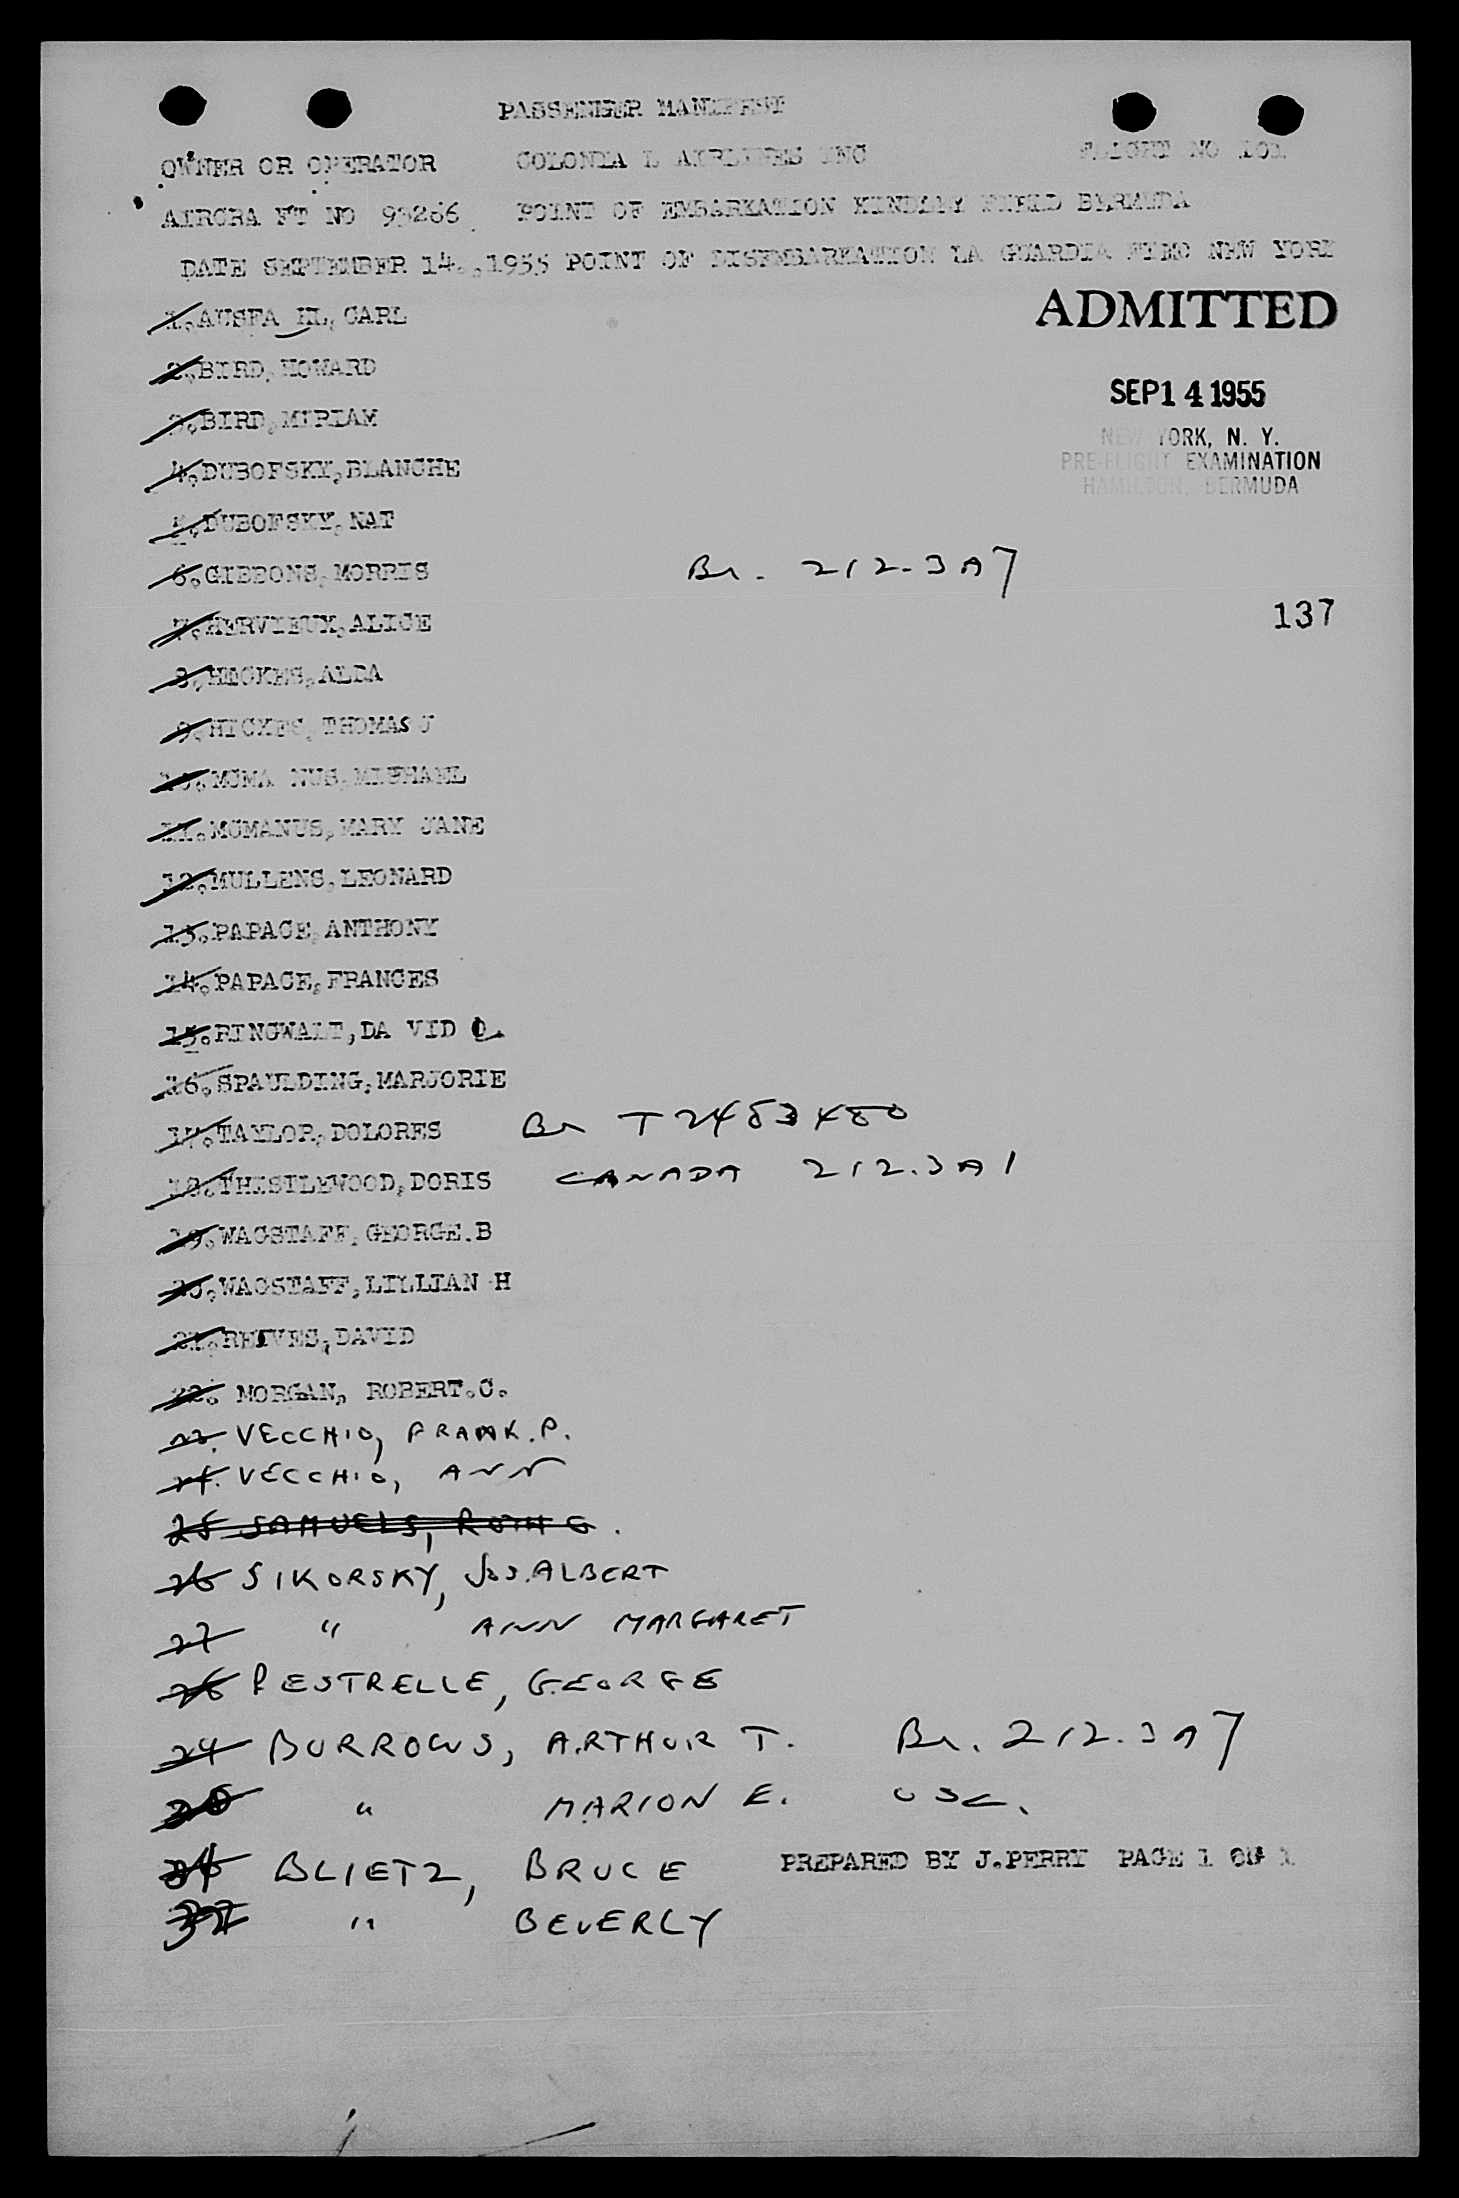 PASSENGER MANIFEST
OWNER OR OPERATOR COLONIA L AIRLINES INC FLIGHT NO 101
AIRCRA FT NO 93266 POINT OF EMBARKATION KINDLEY FIELD BERMUDA
DATE SEPTEMBER 14.,1955 POINT OF DISEMBARKATION LA GUARDIA NEW YORK
ADMITTED
SEP 14 1955
NEW YORK, N. Y.
PRE-FLIGHT EXAMINATION
HAMILTON, BERMUDA
1. CARL
2.BIRD,HOWARD
3.BIRD,MIRIAM
4.DUBOFSKY,BLANCHE
5.DUBOFSKY,NAT
6.GIBBONS,MORRIS Br. 212.3A7
137
7.HERVIEUX,ALICE
8.HICKES,ALDA
9.HICKES,THOMAS J
10.MCMA NUS,MICHAEL
11.MCMANUS,MARY JANE
12.MULLENS,LEONARD
13.PAPACE,ANTHONY
14.PAPACE,FRANCES
15.RINGWALT,DA VID
16.SPAULDING,MARJORIE
17.TAYLOR,DOLORES Br T2483480
18.THISTLEWOOD,DORIS CANADA 212.3A1
19.WAGSTAFF,GEORGE.B
20.WAGSTAFF,LILLIAN H
21.REEVES,DAVID
22. MORGAN, ROBERT.C.
23. VECCHIO, FRANK.P.
24. VECCHIO, ANN
25 SAMUELS, RUTH G.
26 SIKORSKY, JOS.ALBERT
27 " ANN MARGARET
28 PESTRELLE, GEORGE
29 BURROWS, ARTHUR T. Br. 212.3A7
30 " MARION E. USC.
31 BLIETZ, BRUCE PREPARED BY J.PERRY PAGE 1 OF 1
32 " BEVERLY